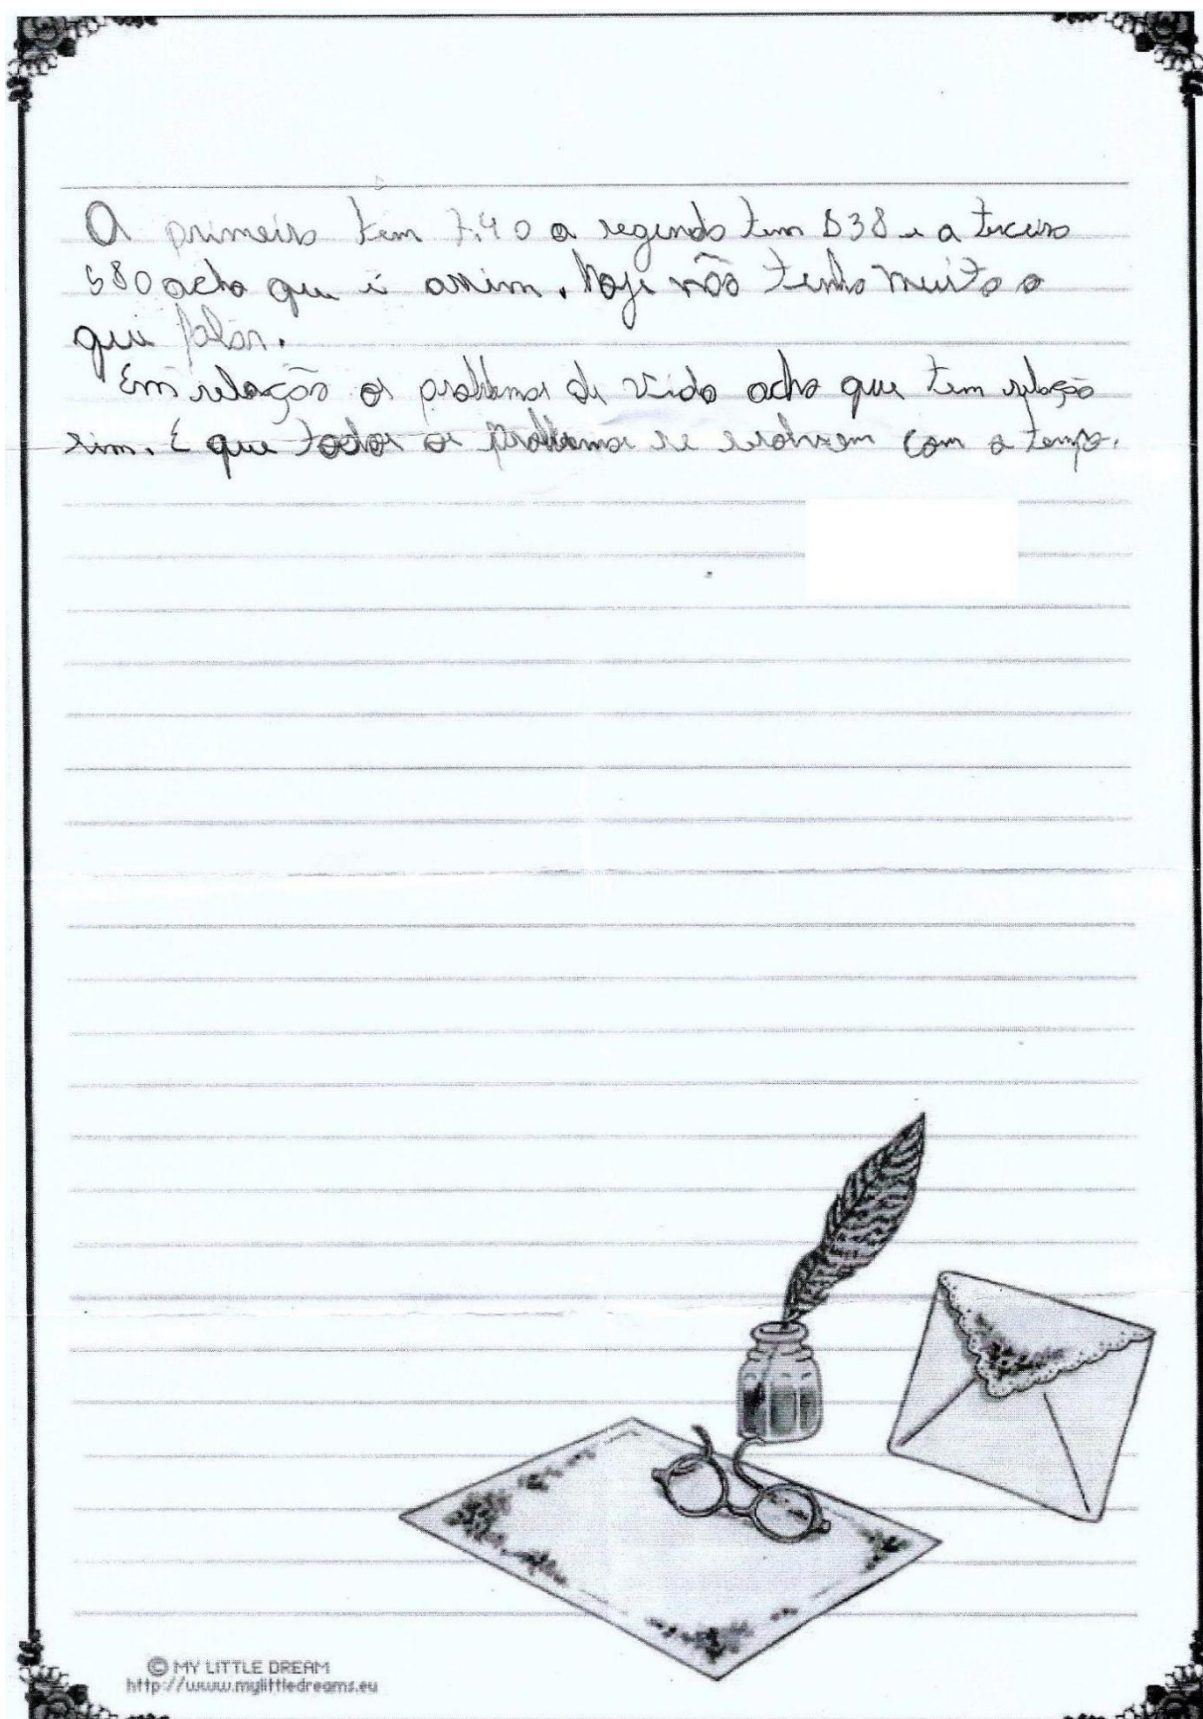 A primeira tem 7,40 a segunda tem 838 e a terceira
580 acho que é assim. Hoje não tenho muito o
que falar.
Em relação os problemas da vida acho que tem relação
sim. E que todos os problemas se resolvem com o tempo.
© MY LITTLE DREAM
http://www.mylittledreams.eu